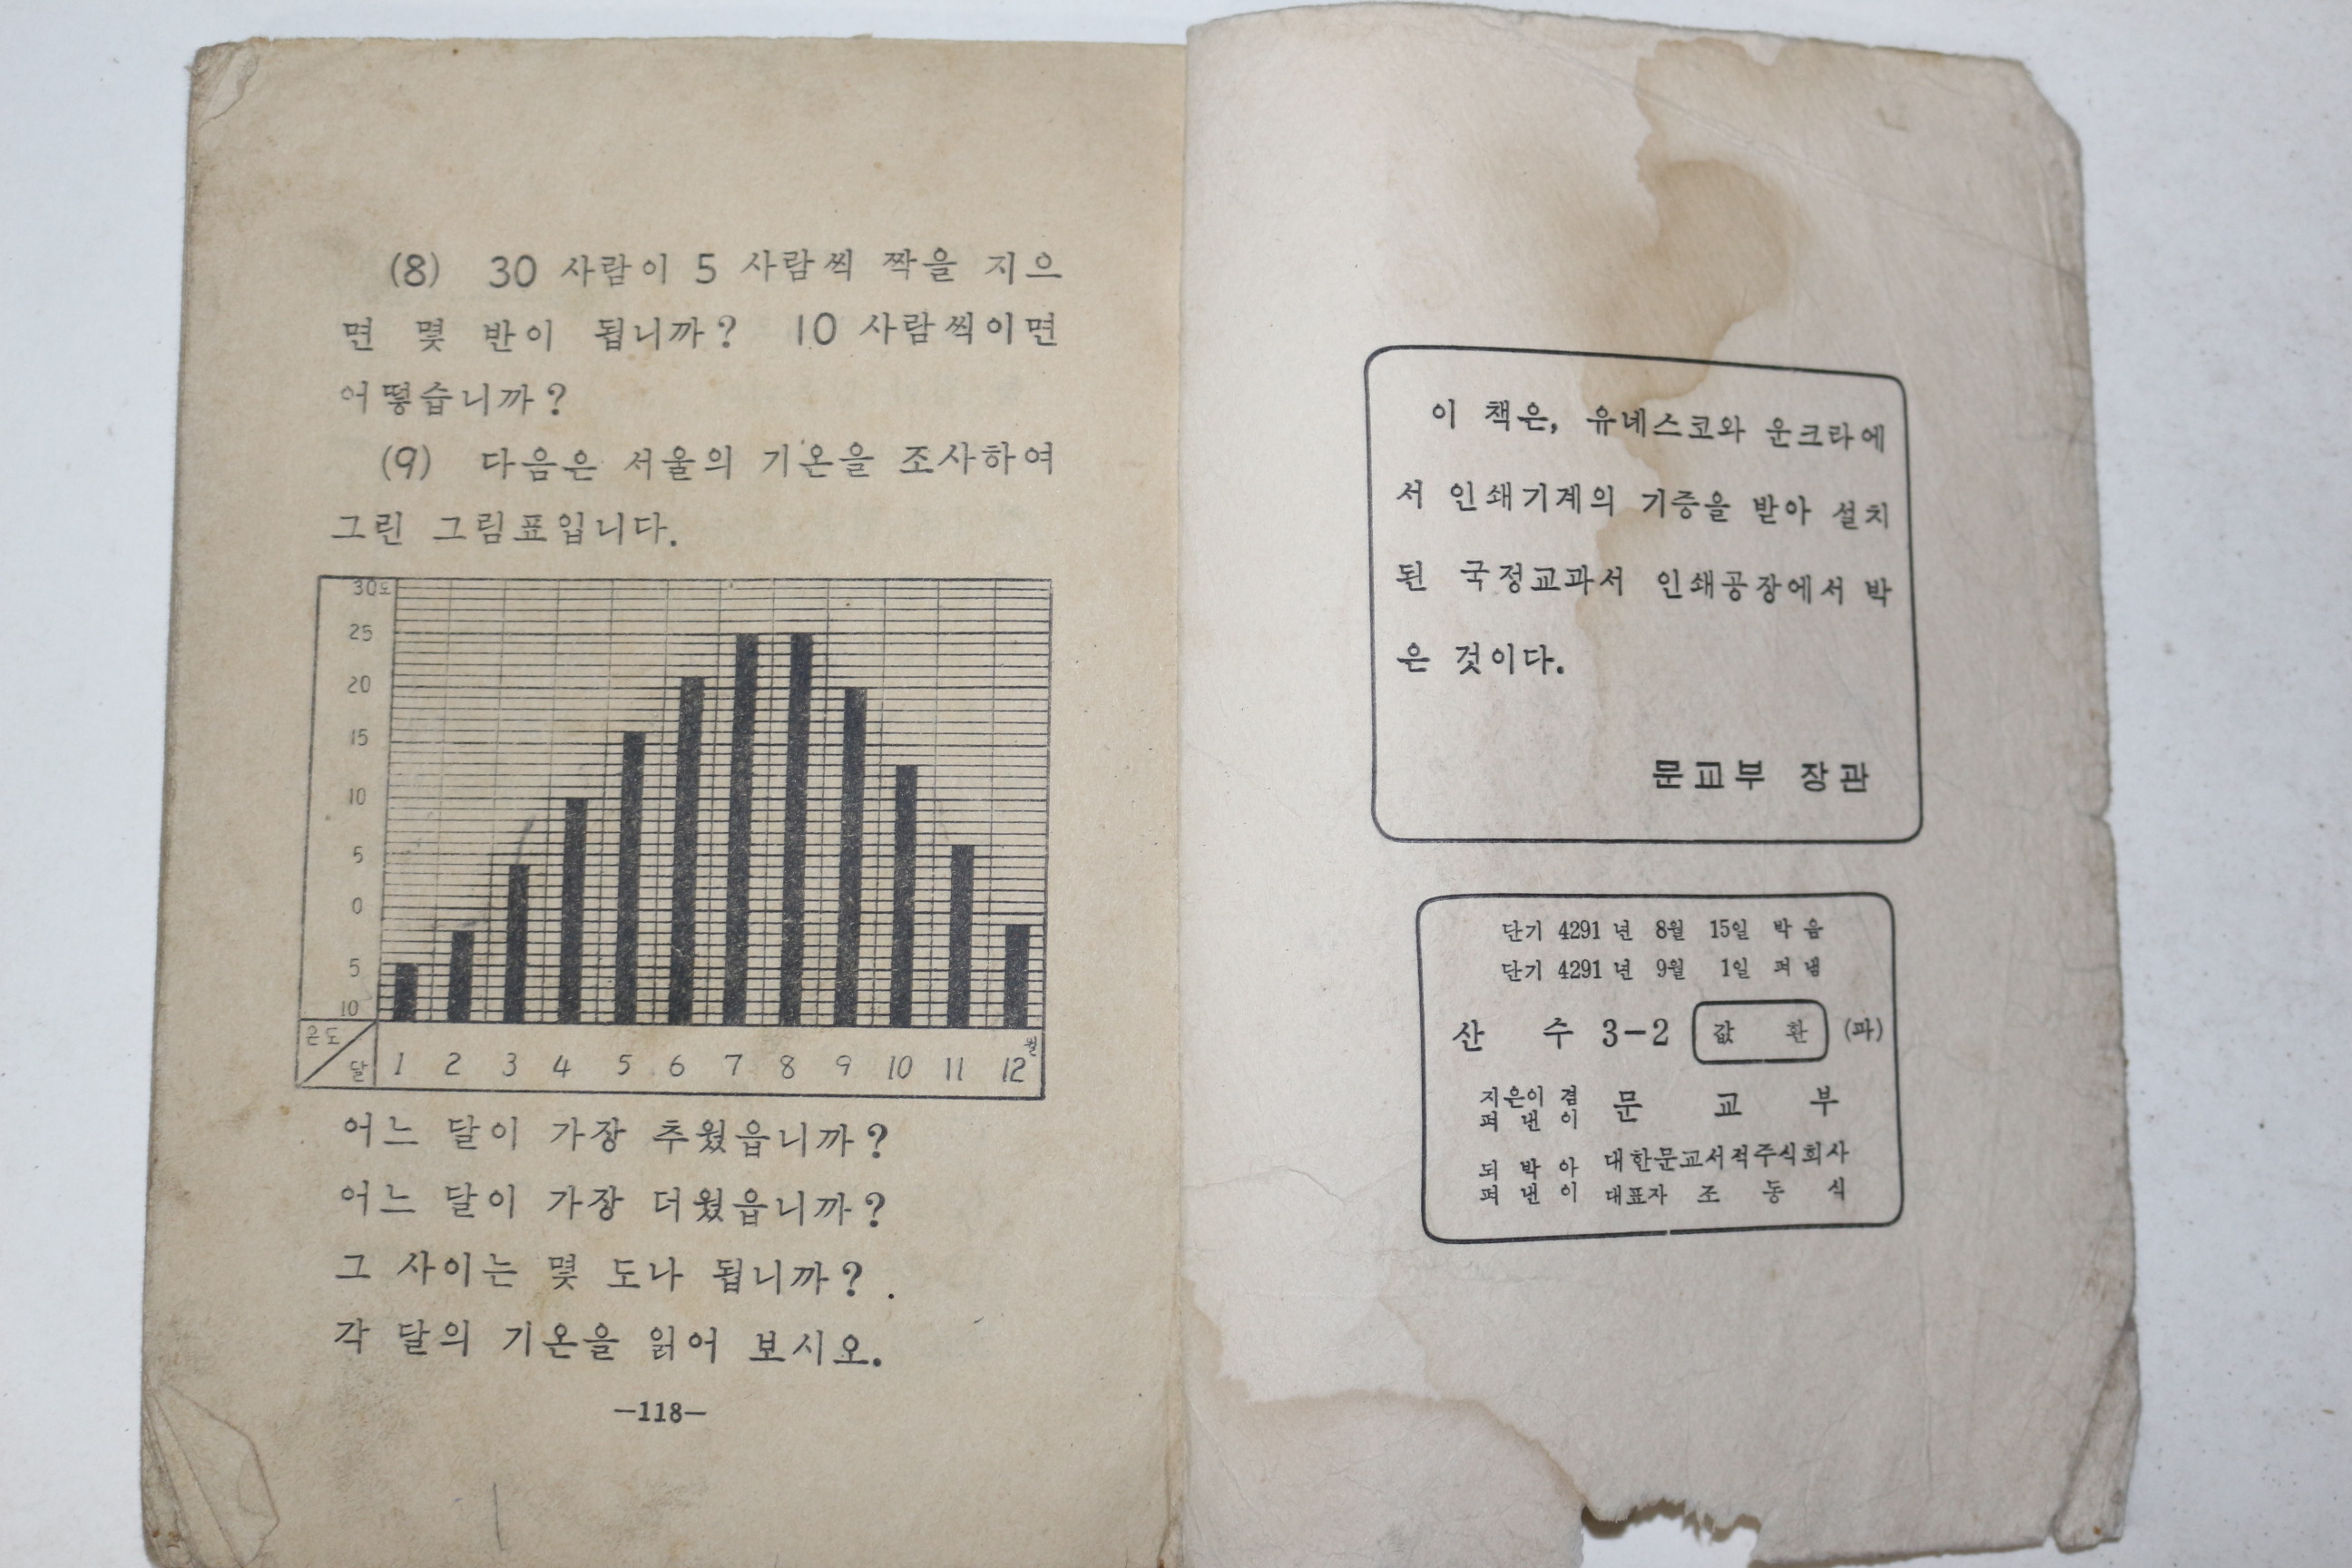 (8) 30 사람이 5 사람씩 짝을 지으
면 몇 반이 됩니까? 10 사람씩이면
어떻습니까?
(9) 다음은 서울의 기온을 조사하여
그린 그림표입니다.
30도
25
20
15
10
5
0
5
10
온도
달
1 2 3 4 5 6 7 8 9 10 11 12월
어느 달이 가장 추웠읍니까?
어느 달이 가장 더웠읍니까?
그 사이는 몇 도나 됩니까?
각 달의 기온을 읽어 보시오.
—118—
이 책은, 유네스코와 운크라에
서 인쇄기계의 기증을 받아 설치
된 국정교과서 인쇄공장에서 박
은 것이다.
문교부 장관
단기 4291 년 8월 15일 박음
단기 4291 년 9월 1일 펴냄
산 수 3-2 값 환 (파)
지은이 겸
펴 낸 이
문 교 부
되 박 아
펴 낸 이
대한문교서적주식회사
대표자 조 동 식